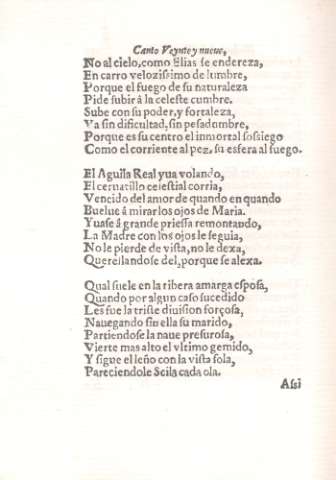 Canto Veynte y nueue,
No al cielo, como Elias se endereza,
En carro velozissimo de lumbre,
Porque el fuego de su naturaleza
Pide subir á la celeste cumbre.
Sube con su poder, y fortaleza,
Va sin dificultad, sin pesadumbre,
Porque es su centro el inmortal sossiego
Como el corriente al pez, su esfera al fuego.
El Aguila Real yua volando,
El ceruatillo celestial corria,
Vencido del amor de quando en quando
Buelue á mirar los ojos de Maria.
Yuase á grande priessa remontando,
La Madre con los ojos le seguia,
No le pierde de vista, no le dexa,
Querellandose del, porque se alexa.
Qual suele en la ribera amarga esposa,
Quando por algun caso sucedido
Les fue la triste diuision forçosa,
Nauegando sin ella su marido,
Partiendose la naue presurosa,
Vierte mas alto el vltimo gemido,
Y sigue el leño con la vista sola,
Pareciendole Scila cada ola.
Assi